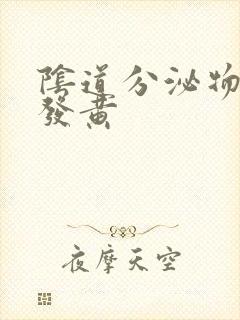 陰道分泌物
發黃
夜摩天空